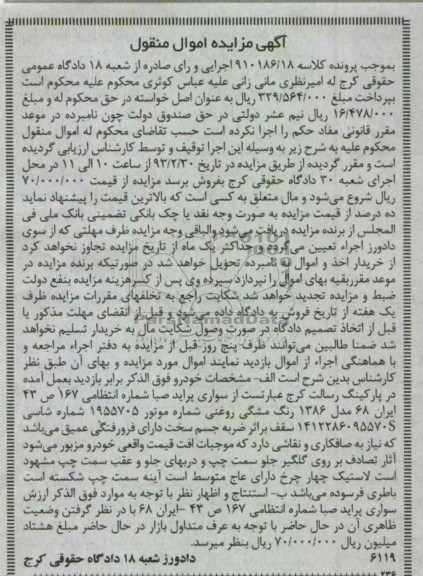 آگهی مزایده اموال منقول
بموجب پرونده کلاسه ۹۱۰۱۸۶/۱۸ اجرایی و رای صادره از شعبه ۱۸ دادگاه عمومی
حقوقی کرج له امیرنظری مانی زانی علیه عباس کوثری محکوم علیه محکوم است
بپرداخت مبلغ ۳۲۹/۵۶۴/۰۰۰ ریال به عنوان اصل خواسته در حق محکوم له و مبلغ
۱۶/۴۷۸/۰۰۰ ریال نیم عشر دولتی در حق صندوق دولت چون نامبرده در موعد
مقرر قانونی مفاد حکم را اجرا نکرده است حسب تقاضای محکوم له اموال منقول
محکوم علیه به شرح زیر به وسیله این اجرا توقیف و توسط کارشناس ارزیابی گردیده
است و مقرر گردیده از طریق مزایده در تاریخ ۹۳/۲/۳۰ از ساعت ۱۰ الی ۱۱ در محل
اجرای شعبه ۳۰ دادگاه حقوقی کرج بفروش برسد مزایده از قیمت ۷۰/۰۰۰/۰۰۰
ریال شروع می‌شود و مال متعلق به کسی است که بالاترین قیمت را پیشنهاد نماید
ده درصد از قیمت مزایده به صورت وجه نقد یا چک بانکی تضمینی بانک ملی فی
المجلس از برنده مزایده دریافت می‌شود والباقی وجه مزایده ظرف مهلتی که از سوی
دادورز اجراء تعیین می‌گردد و حداکثر یک ماه از تاریخ مزایده تجاوز نخواهد کرد
از خریدار اخذ و اموال به نامبرده تحویل خواهد شد در صورتیکه برنده مزایده در
موعد مقرربقیه بهای اموال را نپردازد سپرده وی پس از کسرهزینه مزایده بنفع دولت
ضبط و مزایده تجدید خواهد شد شکایت راجع به تخلفهای مقررات مزایده ظرف
یک هفته از تاریخ فروش به دادگاه داده می‌شود و قبل از انقضای مهلت مذکور یا
قبل از اتخاذ تصمیم دادگاه در صورت وصول شکایت مال به خریدار تسلیم نخواهد
شد ضمنا طالبین می‌توانند ظرف پنج روز قبل از مزایده به دفتر اجراء مراجعه و
با هماهنگی اجراء از اموال بازدید نمایند اموال مورد مزایده و بهای آن طبق نظر
کارشناس بدین شرح است الف- مشخصات خودرو فوق الذکر برابر بازدید بعمل آمده
در پارکینگ رسالت کرج عبارتست از سواری پراید صبا شماره انتظامی ۱۶۷ ص ۴۳
ایران ۶۸ مدل ۱۳۸۶ رنگ مشکی روغنی شماره موتور ۱۹۵۵۷۰۵ شماره شاسی
S۱۴۱۲۲۸۶۰۹۵۵۷۰ سقف براثر ضربه جسم سخت دارای فرورفتگی عمیق می‌باشد
که نیاز به صافکاری و نقاشی دارد که موجبات افت قیمت واقعی خودرو مزبور می‌شود
آثار تصادف بر روی گلگیر جلو سمت چپ و دربهای جلو و عقب سمت چپ مشهود
است لاستیک چهار چرخ دارای عاج متوسط است آینه سمت چپ شکسته است
باطری فرسوده می‌باشد ب- استنتاج و اظهار نظر با توجه به موارد فوق الذکر ارزش
سواری پراید صبا شماره انتظامی ۱۶۷ ص ۴۳ -ایران ۶۸ با در نظر گرفتن وضعیت
ظاهری آن در حال حاضر با توجه به عرف متداول بازار در حال حاضر مبلغ هشتاد
میلیون ریال ۷۰/۰۰۰/۰۰۰ ریال بنظر میرسد.
۶۱۱۹ دادورز شعبه ۱۸ دادگاه حقوقی کرج